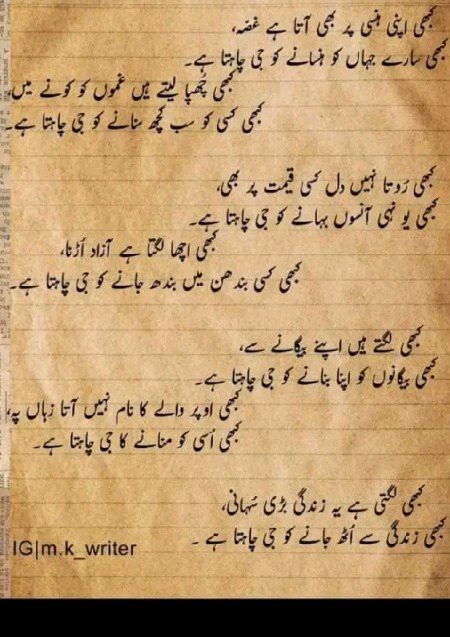 کبھی اپنی ہنسی پر بھی آتا ہے غصّہ،
کبھی سارے جہاں کو ہنسانے کو جی چاہتا ہے۔
کبھی چُھپا لیتے ہیں غموں کو کونے میں،
کبھی کسی کو سب کچھ سنانے کو جی چاہتا ہے۔
کبھی رُوتا نہیں دل کسی قیمت پر بھی،
کبھی یو نہی آنسوں بہانے کو جی چاہتا ہے۔
کبھی اچھا لگتا ہے آزاد اَڑنا،
کبھی کسی بندھن میں بندھ جانے کو جی چاہتا ہے۔
کبھی لگتے ہیں اپنے بیگانے سے،
کبھی بیگانوں کو اپنا بنانے کو جی چاہتا ہے۔
کبھی اوپر والے کا نام نہیں آتا زباں پہ،
کبھی اُسی کو منانے کا جی چاہتا ہے۔
کبھی لگتی ہے یہ زندگی بڑی سُہانی،
کبھی زندگی سے اُٹھ جانے کو جی چاہتا ہے ۔
IG|m.k_writer